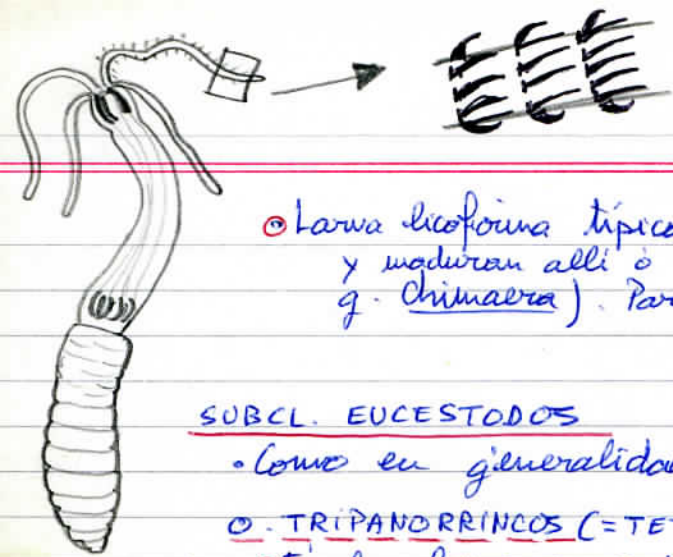 ⊙ Larva licoforma típica
y maduran allí ó
g. Chimaera). Par
SUBCL. EUCESTODOS
• Como en generalidad
O. TRIPANORRINCOS (=TE